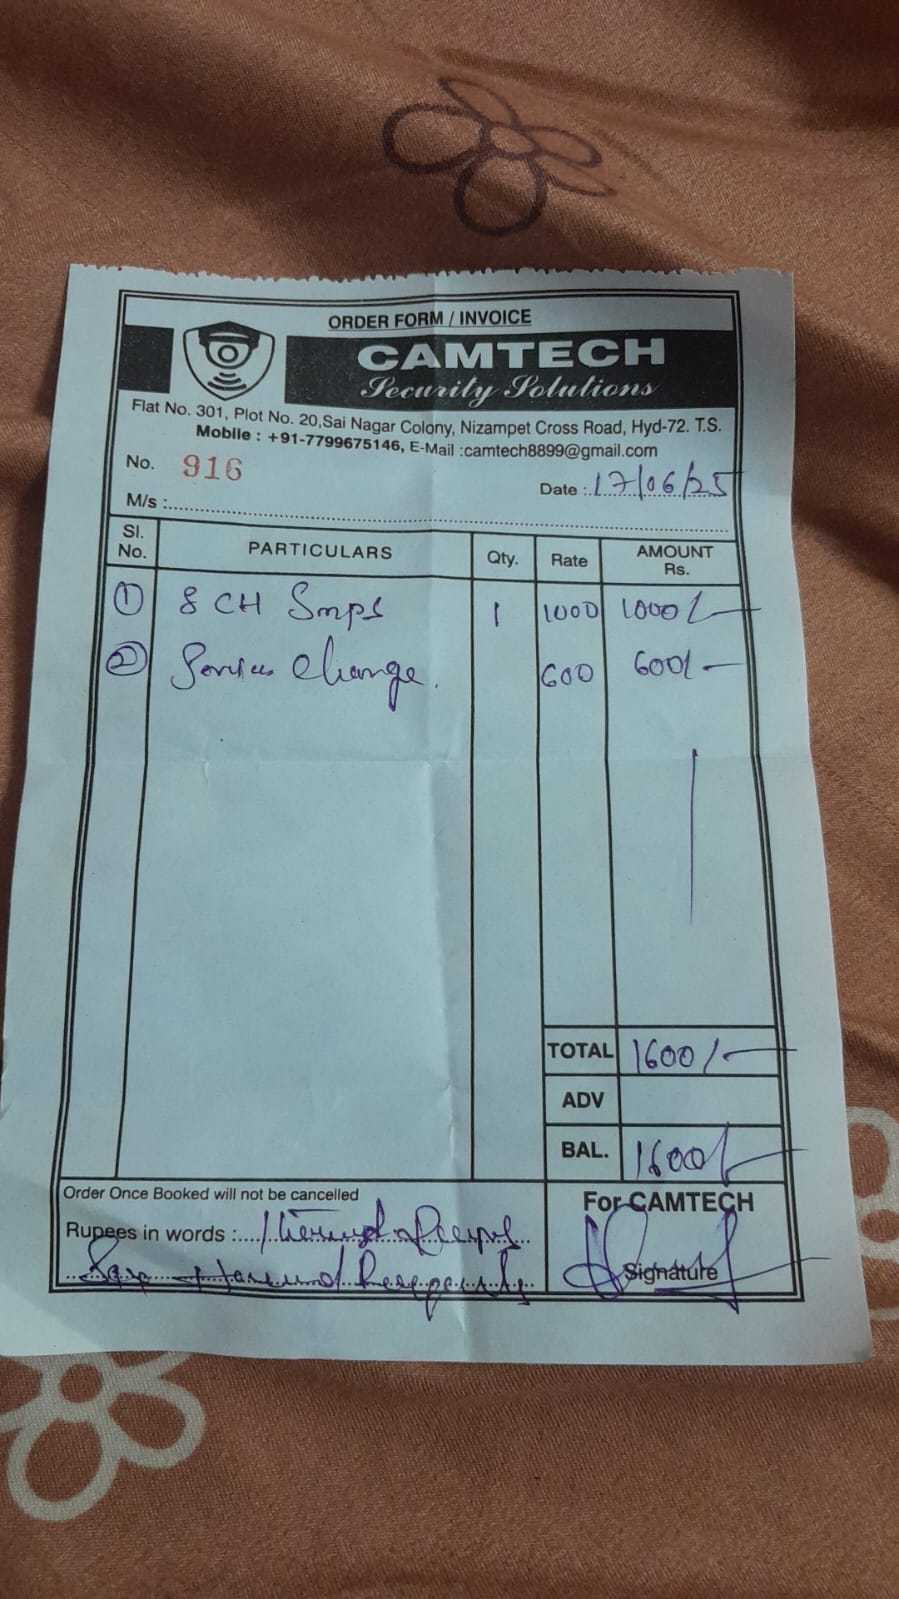 ORDER FORM / INVOICE
CAMTECH
Security Solutions
Flat No. 301, Plot No. 20,Sai Nagar Colony, Nizampet Cross Road, Hyd-72. T.S.
Mobile : +91-7799675146, E-Mail :camtech8899@gmail.com
No. 916
Date : 17/06/25
M/s :
Sl. No. PARTICULARS Qty. Rate AMOUNT Rs.
1 8 CH Smps 1 1000 1000/-
2 Service Change. 600 600/-
TOTAL 1600/-
ADV
BAL. 1600/-
Order Once Booked will not be cancelled
For CAMTECH
Rupees in words :
Signature